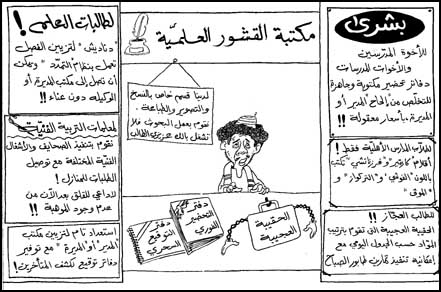 بشرى
للأخوة المدرسين
والأخوات المدرسات
دفاتر تحضير مكتوبة وجاهزة
للتخلص من إلحاح المدير أو
المديرة، بأسعار معقولة!!
لمدراء المدارس الأهلية فقط!
أقلام "كارتير" و"فرزاتشي" تكتب
باللون "النوفي" و"التركواز" و
"الموف"
للطالب العجاز!!
الحقيبة العجيبة التي تقوم بترتيب
المواد حسب الجدول اليومي مع
إمكانية تنفيذ تمارين طابور الصباح
مكتبة القشور العلميّة
لدينا قسم خاص بالنسخ
والتصوير والطباعة..
نقوم بعمل البحوث فلا
تشغل بالك عزيزي الطالب
دفتر
التوقيع
السحري
دفتر
التحضير
الفوري
الحقيبة
العجيبة
لطالبات العلم!
"دناديش" لتزيين الفصل
تعمل بنظام التمدد، ويمكن
أن تصل إلى مكتب المديرة أو
الوكيلة دون عناء!!
لمعلمات التربية الفنية
نقوم بتنفيذ الصحايف والأشغال
الفنية المختلفة مع توصيل
الطلبات للمنازل!
لا داعي للقلق بعد الآن من
عدم وجود الموهبة!!
استعداد تام لتزيين مكتب
المدير أو المديرة، مع توفير
دفاتر توقيع تكشف المتأخرين!